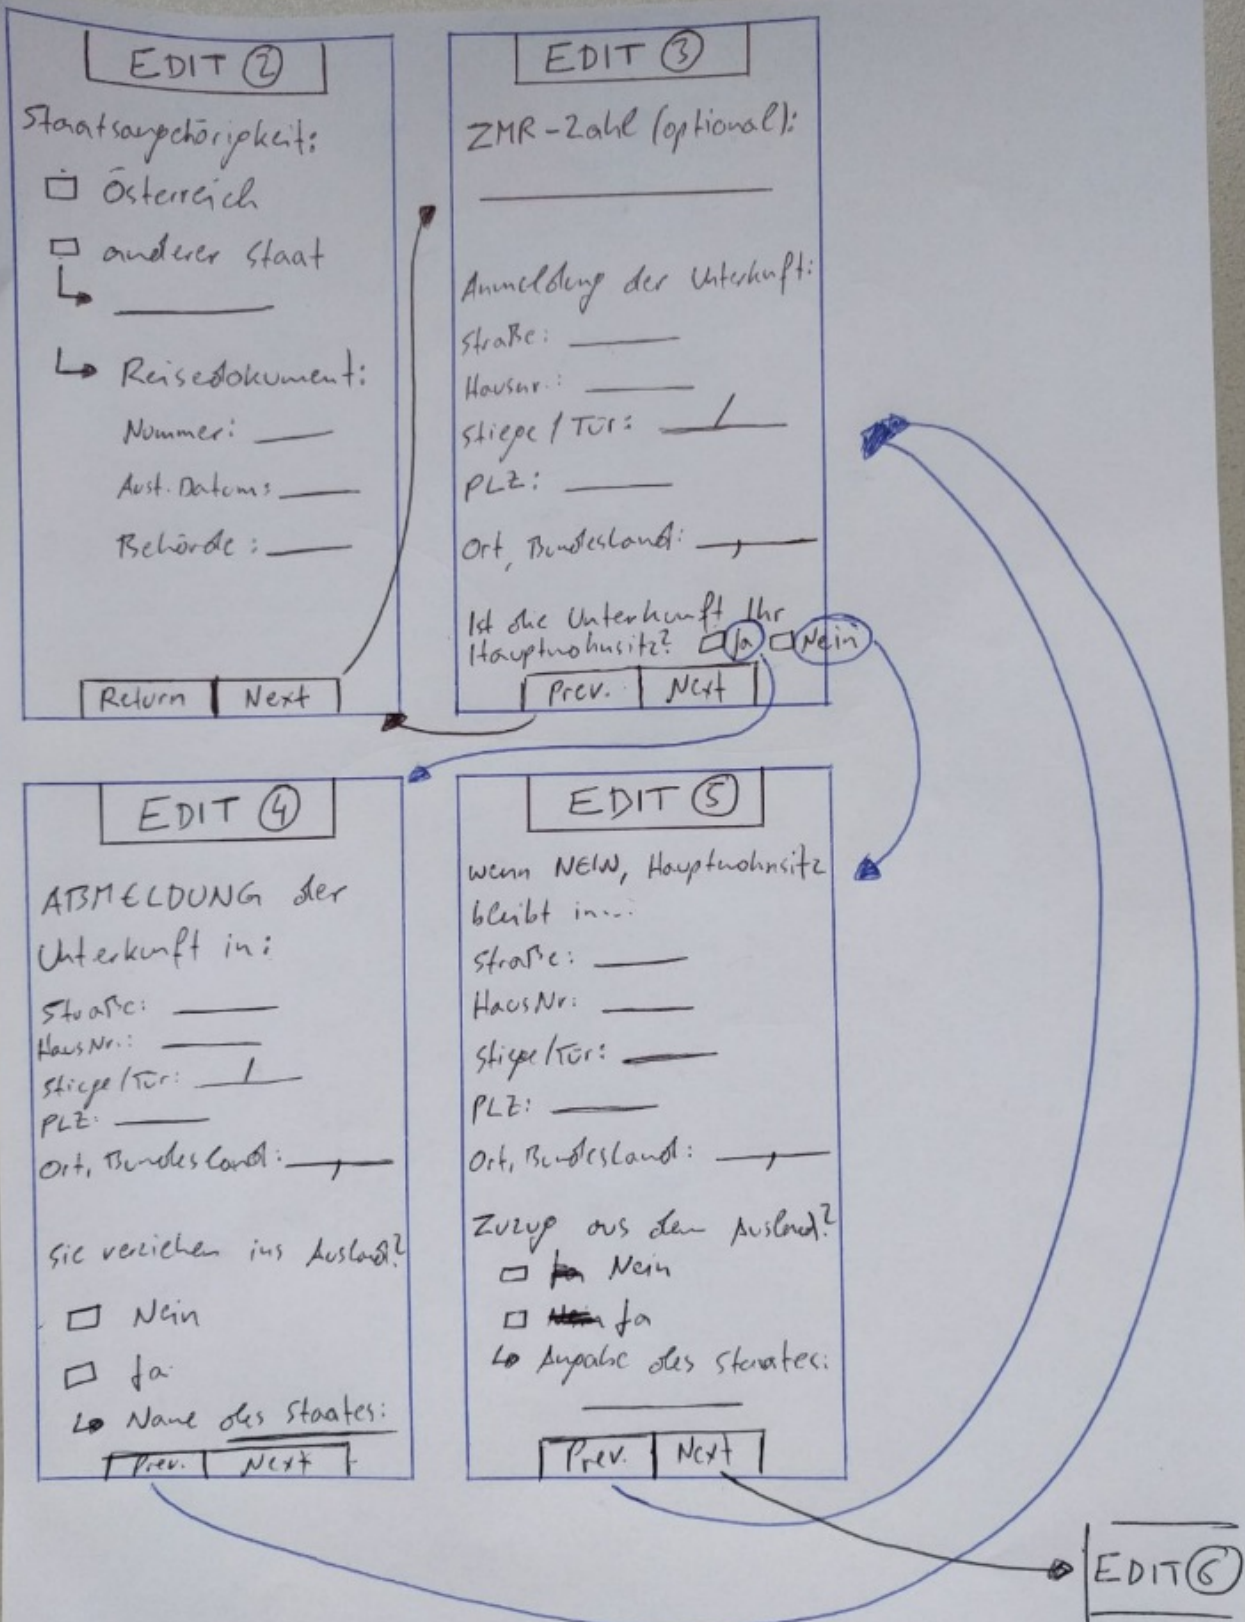 EDIT 2
Staatsangehörigkeit:
Österreich
anderer Staat
Reisedokument:
Nummer:
Aust. Datum:
Behörde:
Return Next
EDIT 3
ZMR-Zahl (optional):
Anmeldung der Unterkunft:
Straße:
Hausnr.:
Stiege / Tür: /
PLZ:
Ort, Bundesland: ,
Ist die Unterkunft Ihr
Hauptwohnsitz? Ja Nein
Prev. Next
EDIT 4
ABMELDUNG der
Unterkunft in:
Straße:
HausNr.:
Stiege/Tür: /
PLZ:
Ort, Bundesland: ,
Sie verziehen ins Ausland?
Nein
Ja
Name des Staates:
Prev. Next
EDIT 5
wenn NEIN, Hauptwohnsitz
bleibt in...:
Straße:
HausNr:
Stiege/Tür:
PLZ:
Ort, Bundesland: ,
Zuzug aus dem Ausland?
Nein
Ja
Angabe des Staates:
Prev. Next
EDIT 6